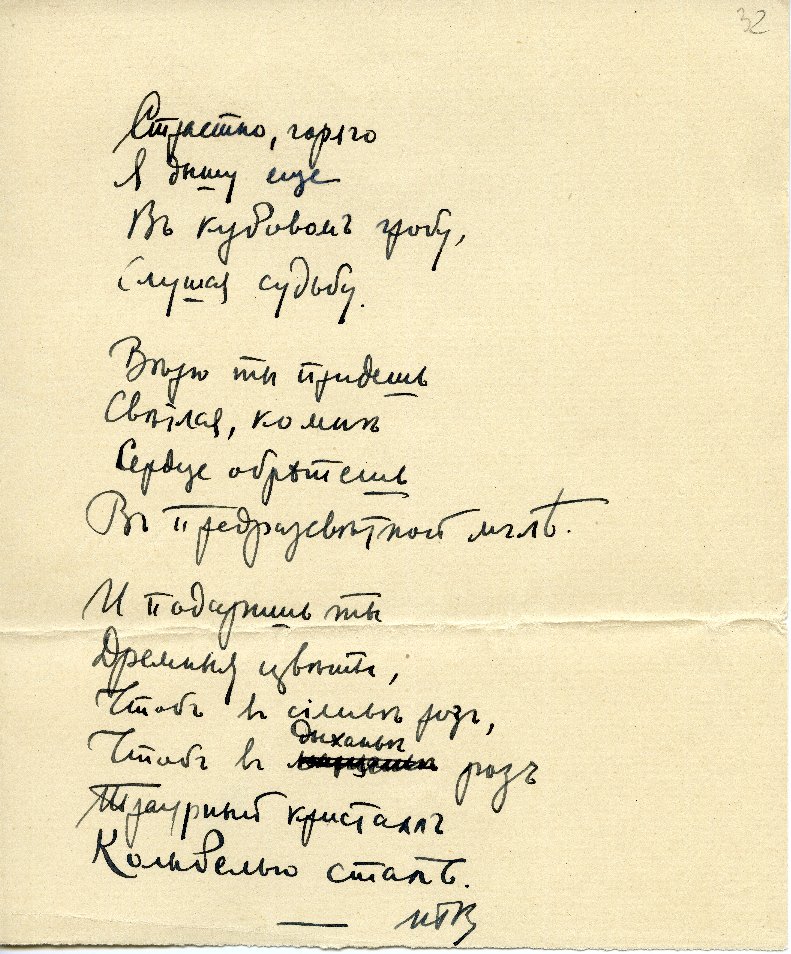 32
Страстно, горячо
Я дышу еще
Въ кубовомъ гробу,
Слушая судьбу.
Вѣрю ты придешь
Свѣтлая, ко мнѣ
Сердце обрѣтешь
Въ предразсвѣтной мглѣ.
И подаришь ты
Дремныя цвѣты,
Чтобъ въ сіяньѣ розъ,
дыханьѣ
Чтобъ въ розъ
Траурный кристаллъ
Колыбелью сталъ.